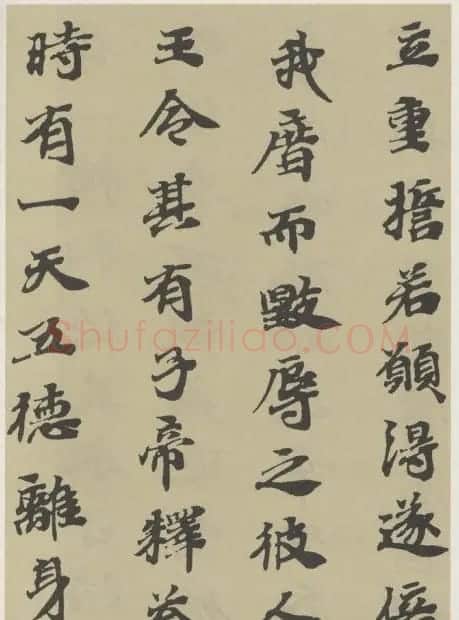 立重擔若願得遂
我而毀辱之彼人
王令其有子帝釋
時有一天五德離身
Shufaziliao.COM